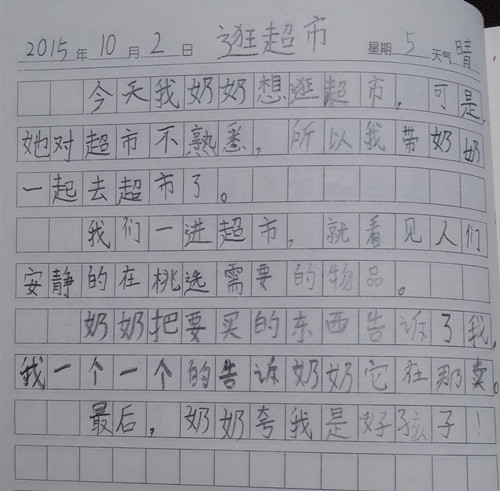 2015年10月2日 逛超市 星期5天气晴
今天我奶奶想逛超市，可是，
她对超市不熟悉，所以我带奶奶
一起去超市了。
我们一进超市，就看见人们
安静的在桃选需要的物品。
奶奶把要买的东西告诉了我，
我一个一个的告诉奶奶它在那卖。
最后，奶奶夸我是好孩子！